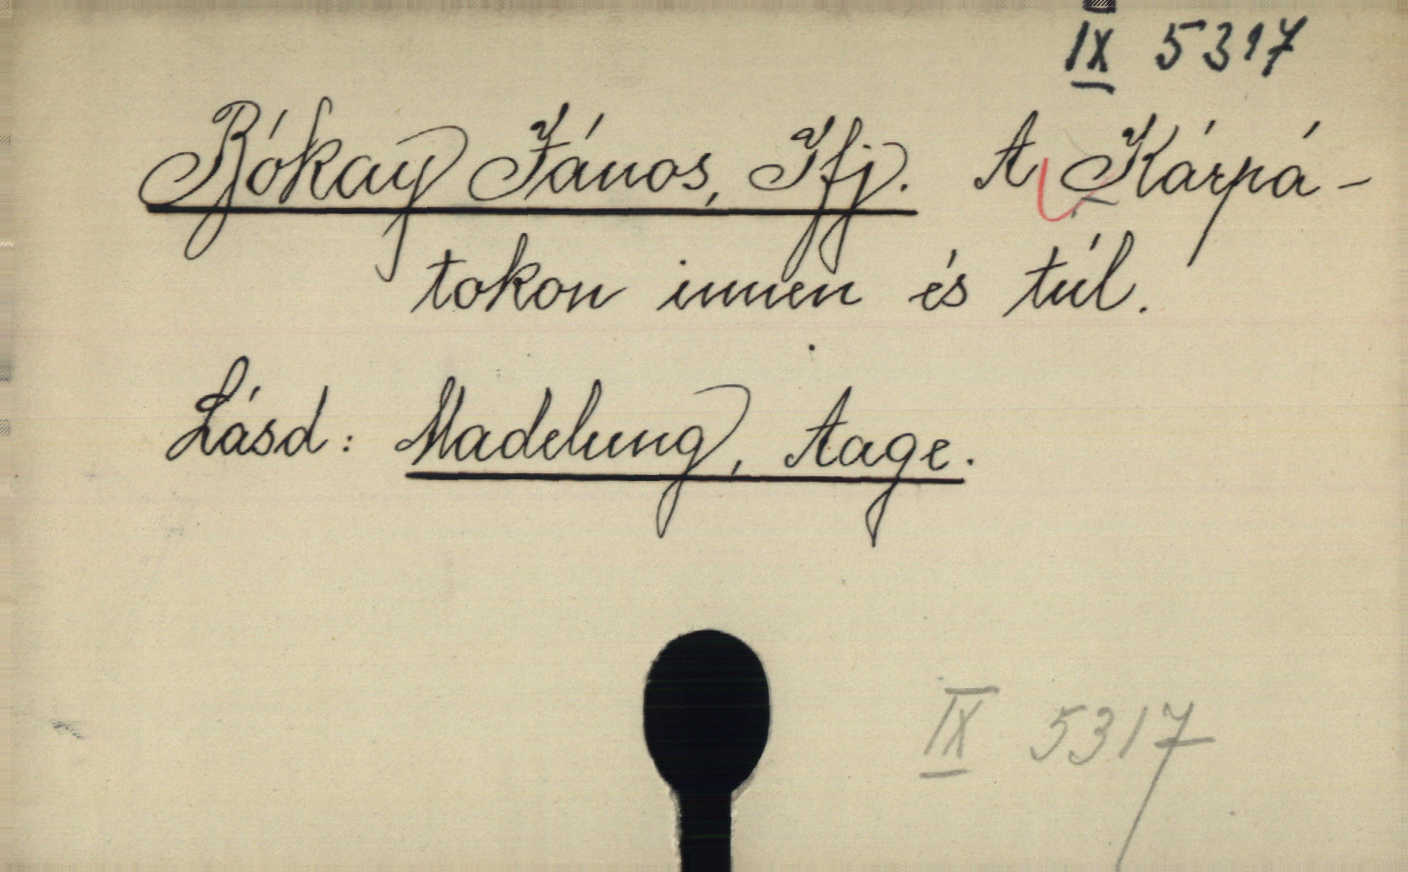 IX 5317
Bókay János, Ifj. A Kárpá-
tokon innen és túl.
Lásd: Madelung, Aage.
IX 5317